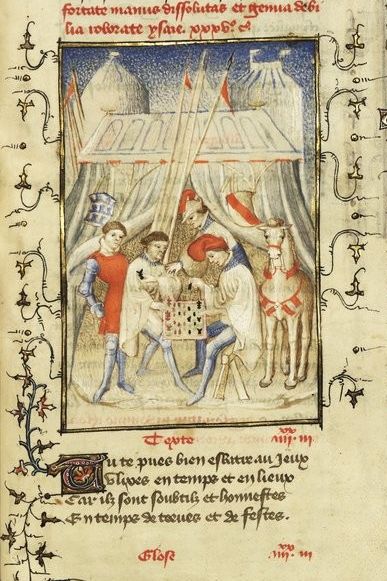 fortate manus dissolutas et genua debi
lia roborate ysaie xxxv° c°
Texte iiii xx iii
Tu te pues bien esbatre au Jeux
Ulixes en temps et en lieux
Car ilz sont soubtilz et honnestes
En temps de treves et de festes.
Glose iiii xx iii